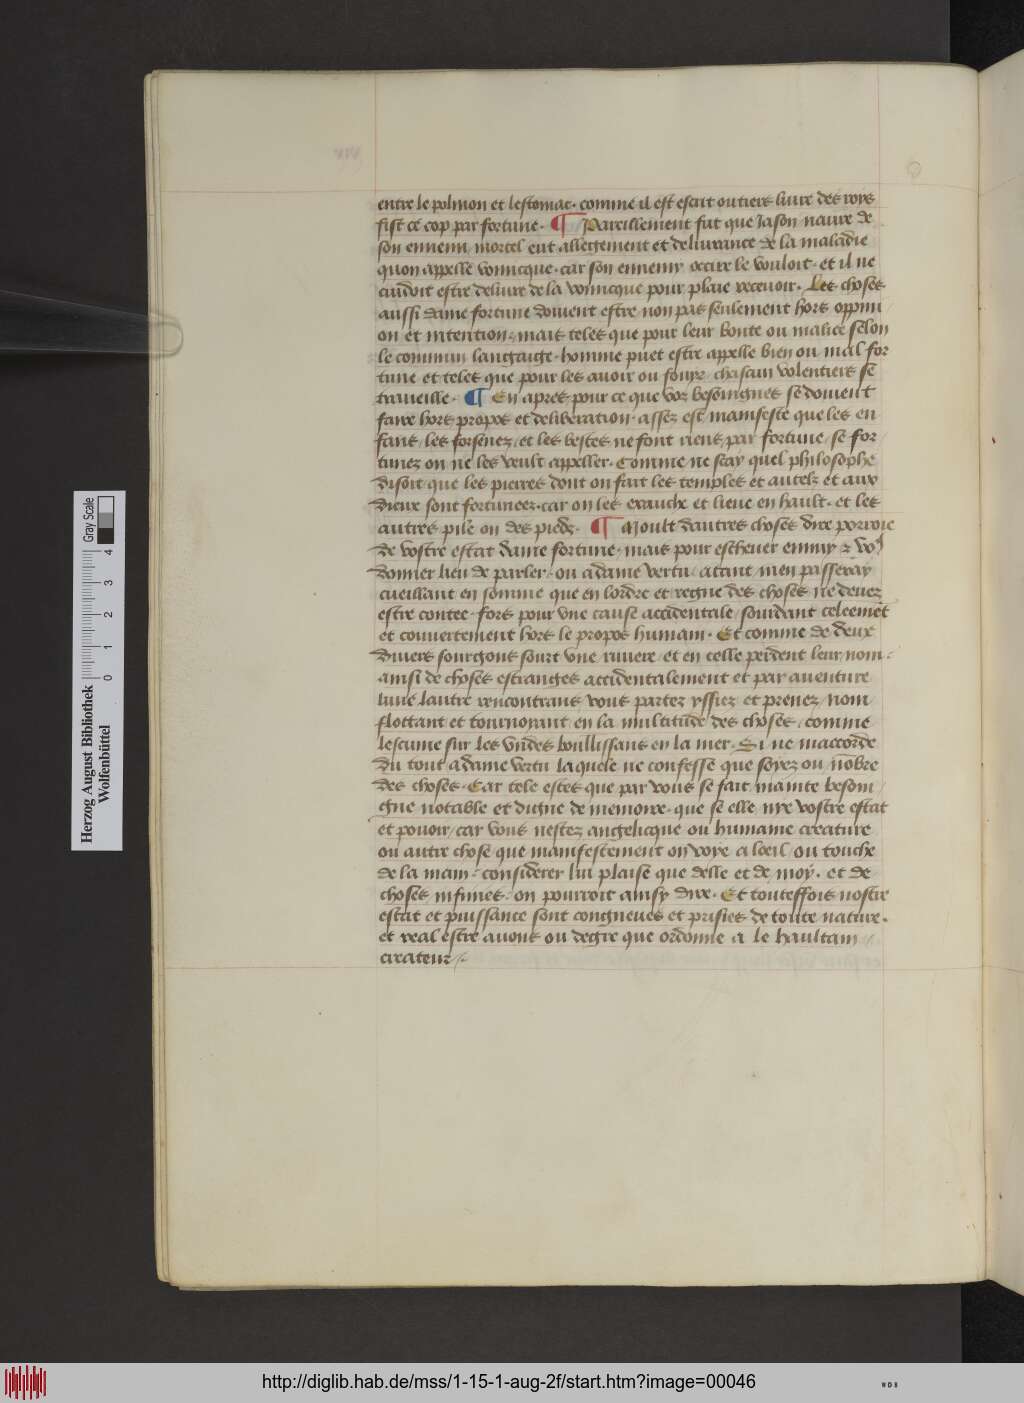 entre le polmon et lestomac. comme il est escrit ou tiers livre des roys
fist ce cop par fortune. ¶ Pareillement fut que Jason navre de
son ennemi mortel eut allegement et delivrance de la maladie
quon appelle vomicque. car son ennemy occire le vouloit. et il ne
cuidoit estre delivre de la vomicque pour plaie recevoir. Les choses
aussi dame fortune doivent estre non pas seulement hors oppini
on et intention, mais teles que pour leur bonte ou malice selon
le commun langaige. homme puet estre appelle bien ou mal for
tune et teles que pour les avoir ou fouyr chascun volentiers se
traveille. ¶ En apres pour ce que voz besoingnes se doivent
faire hors propos et deliberation assez est manifeste que les en
fans, les forsenez, et les bestes ne font riens par fortune, se for
tunez on ne les veult appeller. Comme ne scay quel philosophe
disoit que les pierres dont on fait les temples et autelz et aux
dieux sont fortuneez. car on les exauche et lieve en hault. et les
autres pile on des piedz. ¶ Moult dautres choses dire porroie
de vostre estat dame fortune, mais pour eschever ennuy &
donner lieu de parler ou a dame vertu. atant men passeray
cueillant en somme que en lordre et regne des choses ne devez
estre contee. fors pour une cause accidentale, sourdant celeement
et couvertement hors le propos humain. Et comme de deux
divers sourgons sourt une riviere, et en celle perdent leur nom.
ainsi de choses estranges accidentalement et par aventure
lune lautre rencontrans vous partez yssiez et prenez nom
flottant et tournoyant en la multitude des choses, comme
lescume sur les undes boullissans en la mer. Si ne maccorde
du tout a dame vertu laquele ne confesse que soyez ou nombre
des choses. Car tele estes que par vous se fait mainte besoin
gne notable et digne de memoire. que se elle nye vostre estat
et povoir, car vous nestez angelicque ou humaine creature
ou autre chose que manifestement on voye a loeil, ou touche
de la main. considerer lui plaise que delle et de moy. et de
choses infinies. on pourroit ainsy dire. Et touteffois nostre
estat et puissance sont congneues et prisies de toute nature.
et real estre avons ou degre que ordonne a le haultain
createur.
Herzog August Bibliothek
Wolfenbüttel
0 1 2 3 4
Gray Scale
http://diglib.hab.de/mss/1-15-1-aug-2f/start.htm?image=00046
WDB